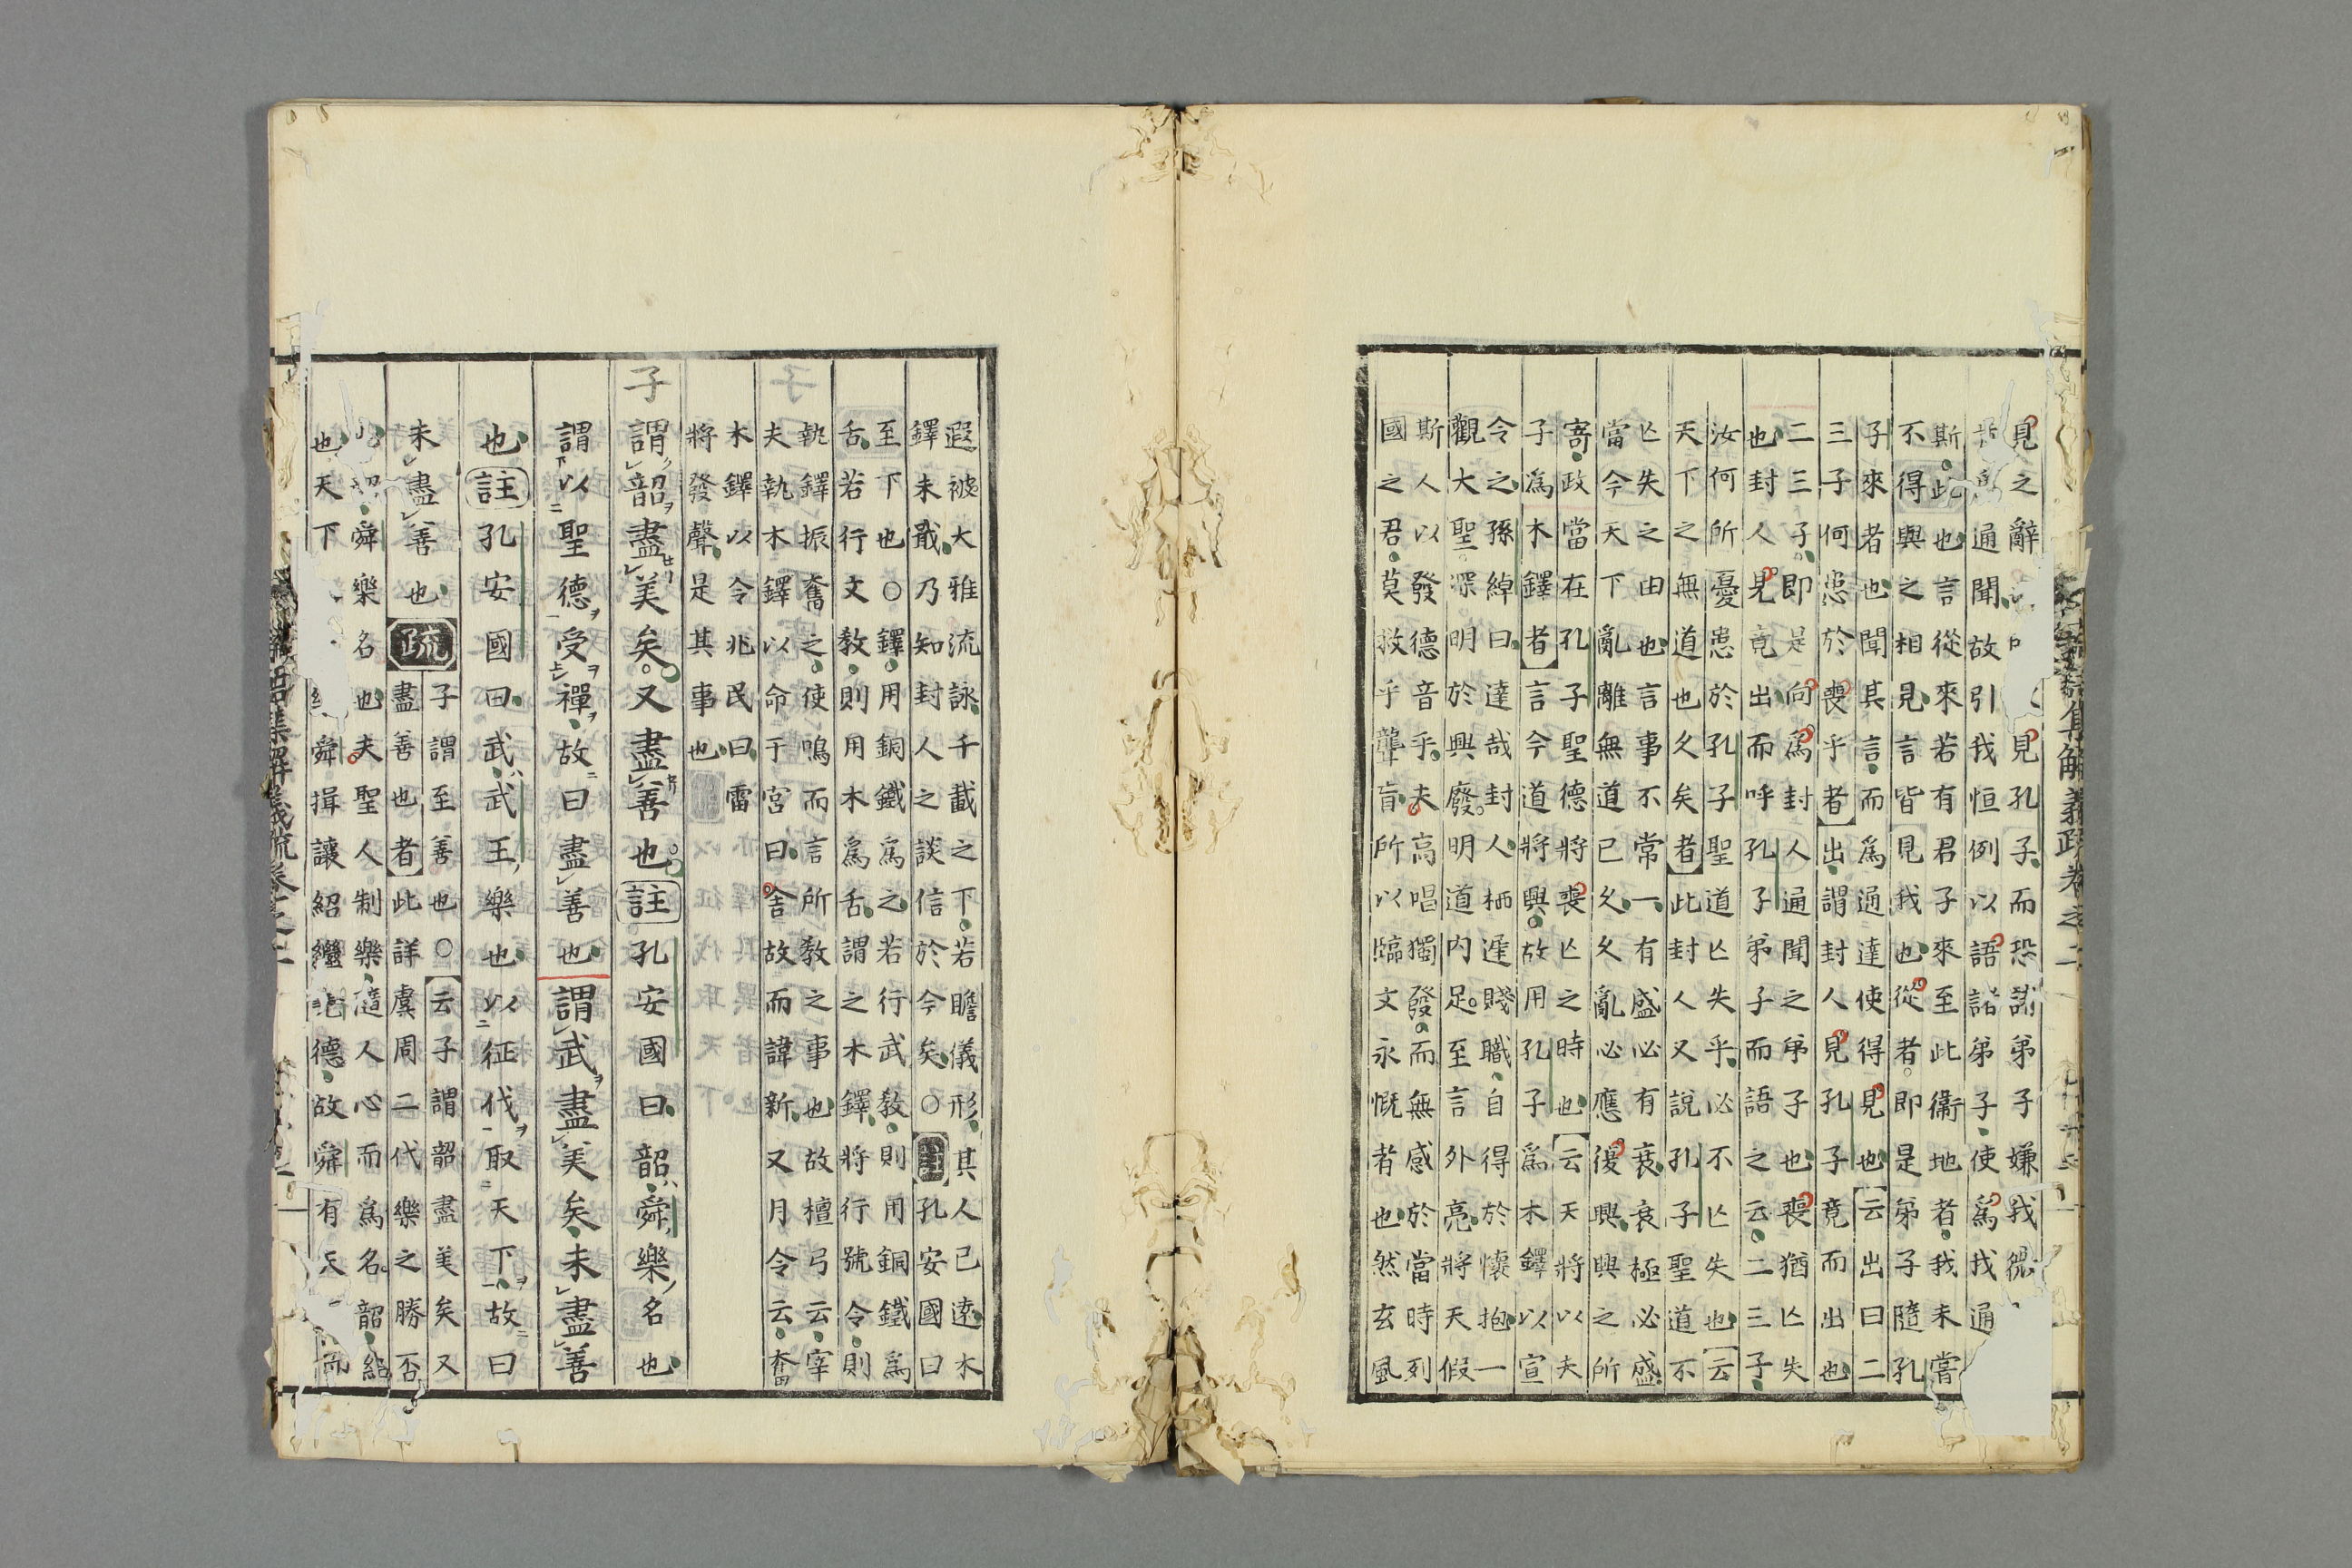 見之辭見孔子而恐諸弟子嫌我微
通聞故引我恒例以語諸弟子使爲我通
斯此也言從來若有君子來至此衞地者我未嘗
不得與之相見言皆見我也從者即是弟子隨孔
子來者也聞其言而爲通達使得見也云出曰二
三子何患於喪乎者出謂封人見孔子竟而出也
二三子即是向爲封人通聞之弟子也喪猶亡失
也封人見竟出而呼孔子弟子而語之云二三子
汝何所憂患於孔子聖道亡失乎必不亡失也云
天下之無道也久矣者此封人又説孔子聖道不
亡失之由也言事不常一有盛必有衰衰極必盛
當今天下亂離無道已久久亂必應復興興之所
寄政當在孔子聖德將喪亡之時也云天將以夫
子爲木鐸者言今道將興故用孔子爲木鐸以宣
令之孫綽曰達哉封人栖遲賤職自得於懷抱一
觀大聖深明於興廢明道内足至言外亮將天假
斯人以發德音乎夫高唱獨發而無感於當時列
國之君莫救乎聾盲所以臨文永慨者也然玄風
遐被大雅流詠千載之下若瞻儀形其人已逺木
鐸未戢乃知封人之談信於今矣〇註孔安國曰
至下也〇鐸用銅鐵爲之若行武教則用銅鐵爲
舌若行文教則用木爲舌謂之木鐸將行號令則
執鐸振奮之使鳴而言所教之事也故檀弓云宰
夫執木鐸以命于宮曰舎故而諱新又月令云奮
木鐸以令兆民曰雷
將發聲是其事也
子謂韶盡美矣又盡善也註孔安國曰韶舜樂名也
謂以聖德受禪故曰盡善也謂武盡美矣未盡善
也註孔安國曰武武王樂也以征伐取天下故曰
未盡善也疏
子謂至善也〇云子謂韶盡美矣又
盡善也者此詳虞周二代樂之勝否
舜樂名也夫聖人制樂隨人心而爲名韶紹
也天下
舜揖讓紹繼
德故舜有天
而